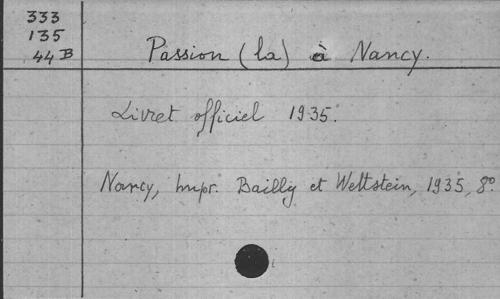 333
135
44 B
Passion (la) à Nancy.
Livret officiel 1935.
Nancy, Impr. Bailly et Wettstein, 1935, 8º.